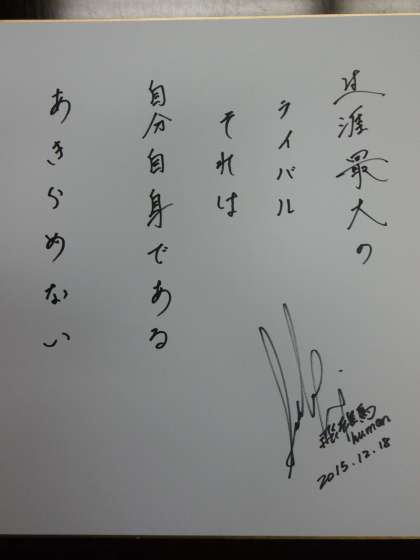 生涯最大の
ライバル
それは
自分自身である
あきらめない
human
2015.12.18